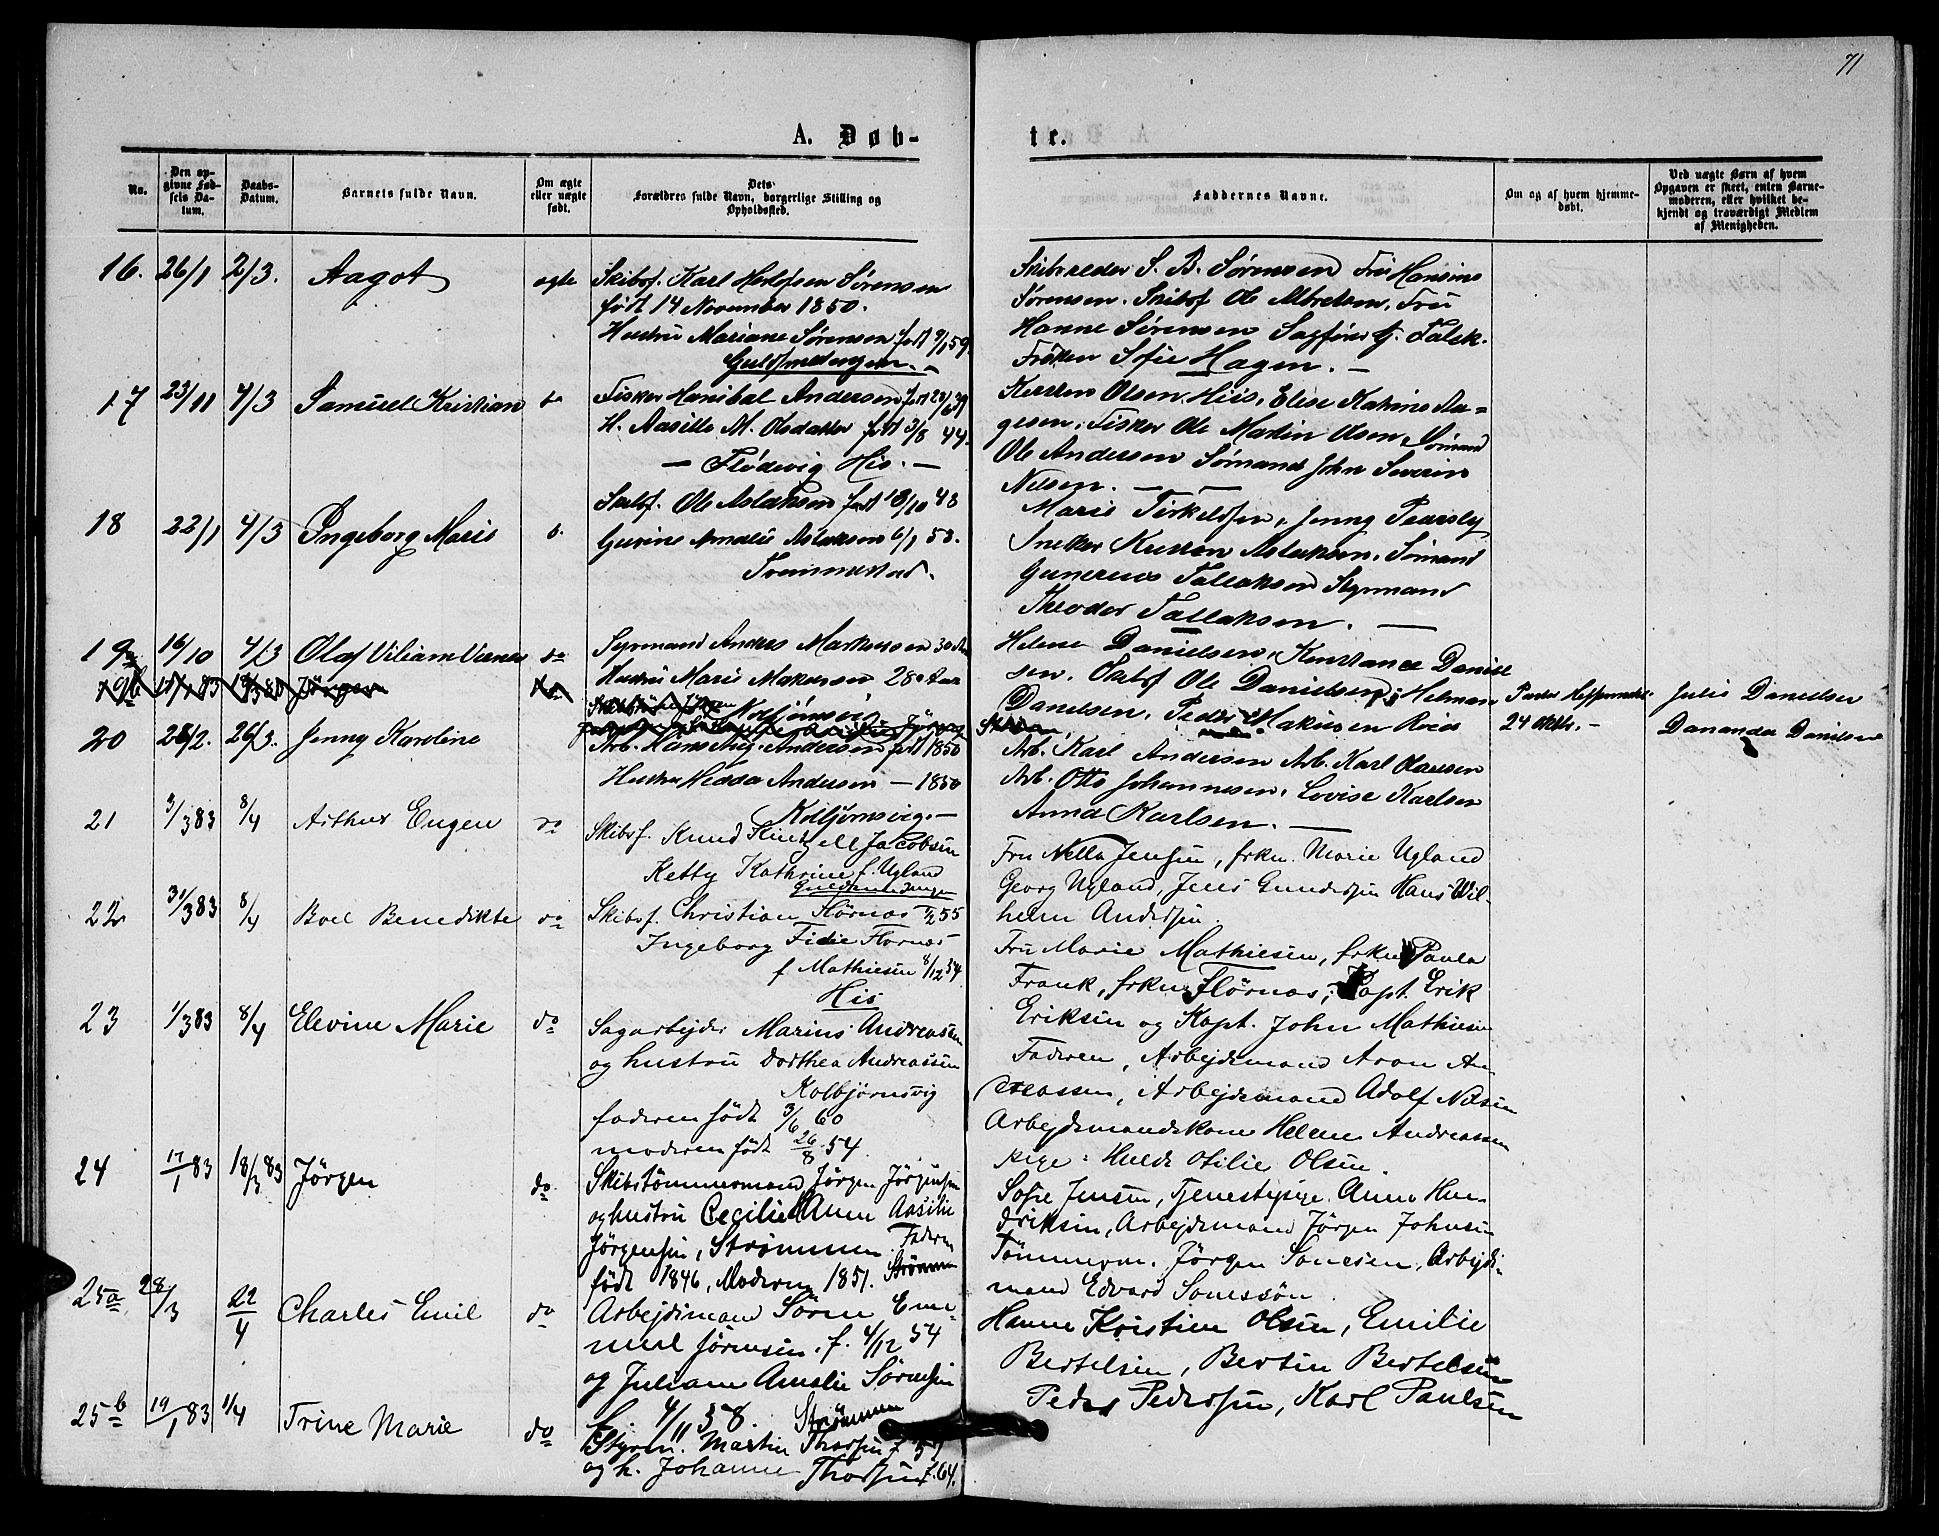 71
A. Døb-
te.
No.
Den op-
givne Fød-
sels Da-
tum.
Daabs-
Datum.
Barnets fulde Navn.
Om ægte
eller uægte
født.
Dets
Forældres fulde Navn, borgerlige Stilling og
Opholdssted.
Faddernes Navne.
Om og af hvem hjemme-
døbt.
Ved uægte Børn af hvem
Opgaven er skeet, enten Barne-
moderen, eller hvilket be-
kjendt og troværdigt Medlem
af Menigheden.
16. 26/1 2/3. Aagot ægte
Skibsf. Karl Sørensen
født 14 November 1850.
Hustru Mariane Sørensen født 9/1 59.
Guldsmedengen.
Skibsreder S. B. Sørensen Fru Hansine
Sørensen. Skibsf Ole Fru
Hanne Sørensen Sagfører G. Falck.
Frøken Sofie Hagen. —
17 23/11 4/3 Samuel Kristian do
Fisker Hanibal Andersen født
H. Aasille M. Olsdatter født 3/8 44.
— Flødevig His. —
Kersten Olsen Hiis, Elise Katrine Aa-
gesen, Fisker Ole Martin Olsen, Sømand
Ole Andersen Sømand John Severin
Nilsen. —
18 22/1 4/3 Ingeborg Marie d.
Skibsf. Ole Aslaksen født 18/10 48
Gurine Amalie Aslaksen 6/1 53.
Marie Terkelsen, Jenny
Snekker Kristen Aslaksen, Sømand
Gunerius Tallaksen Styrmand
Theodor Tallaksen. —
19a 16/10 4/3 Olaf Viliam Verner do
Styrmand Anders Markussen 30 Aar
Hustru Marie Makusen 28 Aar
Kolbjørnsvig
Helene Danielsen, Konstance Daniel
sen. Skibsf Ole Danielsen, Helman
Danielsen. Peder Makussen
Peder
24 Oktbr. —
Julie Danielsen
Danielsen
19b 17/1 83 18/3 83 Jørgen do
20 25/2. 26/3. Jenny Karoline
Arb. Andersen født 1850
Hustru Nedda Andersen — 1850
Kolbjørnsvig. —
Arb. Karl Andersen Arb. Karl Olausen
Arb. Otto Johannesen, Lovise Karlsen
Anna Karlsen. —
21 3/3 83 8/4 Arthur Eugen do
Skibsf. Knud Jacobsen
Ketty Kathrine f. Ugland
Guldsmedengen
Fru Nella Jensen, frkn. Marie Ugland
Georg Ugland, Jens Gundersen Hans Wil-
helm Andersen.
22 31/3 83 8/4 Boel Benedikte do
Skibsf. Christian Flørnæs 7/2 55
Ingeborg Fidie Flørnæs
f Mathiesen 8/12 54.
His
Fru Marie Mathiesen, frkn Paula
Frank, frkn Flørnæs, Kapt. Erik
Eriksen og Kapt. John Mathiesen
23 1/3 83 8/4 Elevine Marie do
Sagarbejder Marius Andreassen
og hustru Dorthea Andreassen
Kolbjørnsvig
faderen født 3/6 60
moderen født 26/8 54.
Faderen, Arbejdsmand Aron An-
dreassen, Arbejdsmand Adolf Nilsen
Arbejdsmandskone Helene Andreassen
Pige: Hulde Otilie Olsen.
24 17/1 83 18/3 83 Jörgen do
Skibstömmermand Jörgen Jörgensen
og hustru Cecilie Anna Aasilie
Jörgensen, Strømmen. Faderen
født 1846, Moderen 1851. Strømmen
Sofie Jensen, Tjenestepige Anna Hen-
driksen, Arbejdsmand Jörgen Johnsen
Tömmerm. Jörgen Sonesen, Arbejds-
mand Edvard Sonessøn.
25a 28/3 22/4 Charles Emil do
Arbejdsmand Sören Em-
mil Sörensen, f. 4/12 54
og Juliane Amalie Sörensen
f. 4/11 58. Strömmen
Hanne Kristine Olsen, Emilie
Bertelsen, Bertin Bertelsen
Peder Pedersen, Karl Paulsen
25b 19/1 83 1/4 Trine Marie do
Styrm. Martin Thorsen f. 57
og h. Johanne Thorsen f. 64.